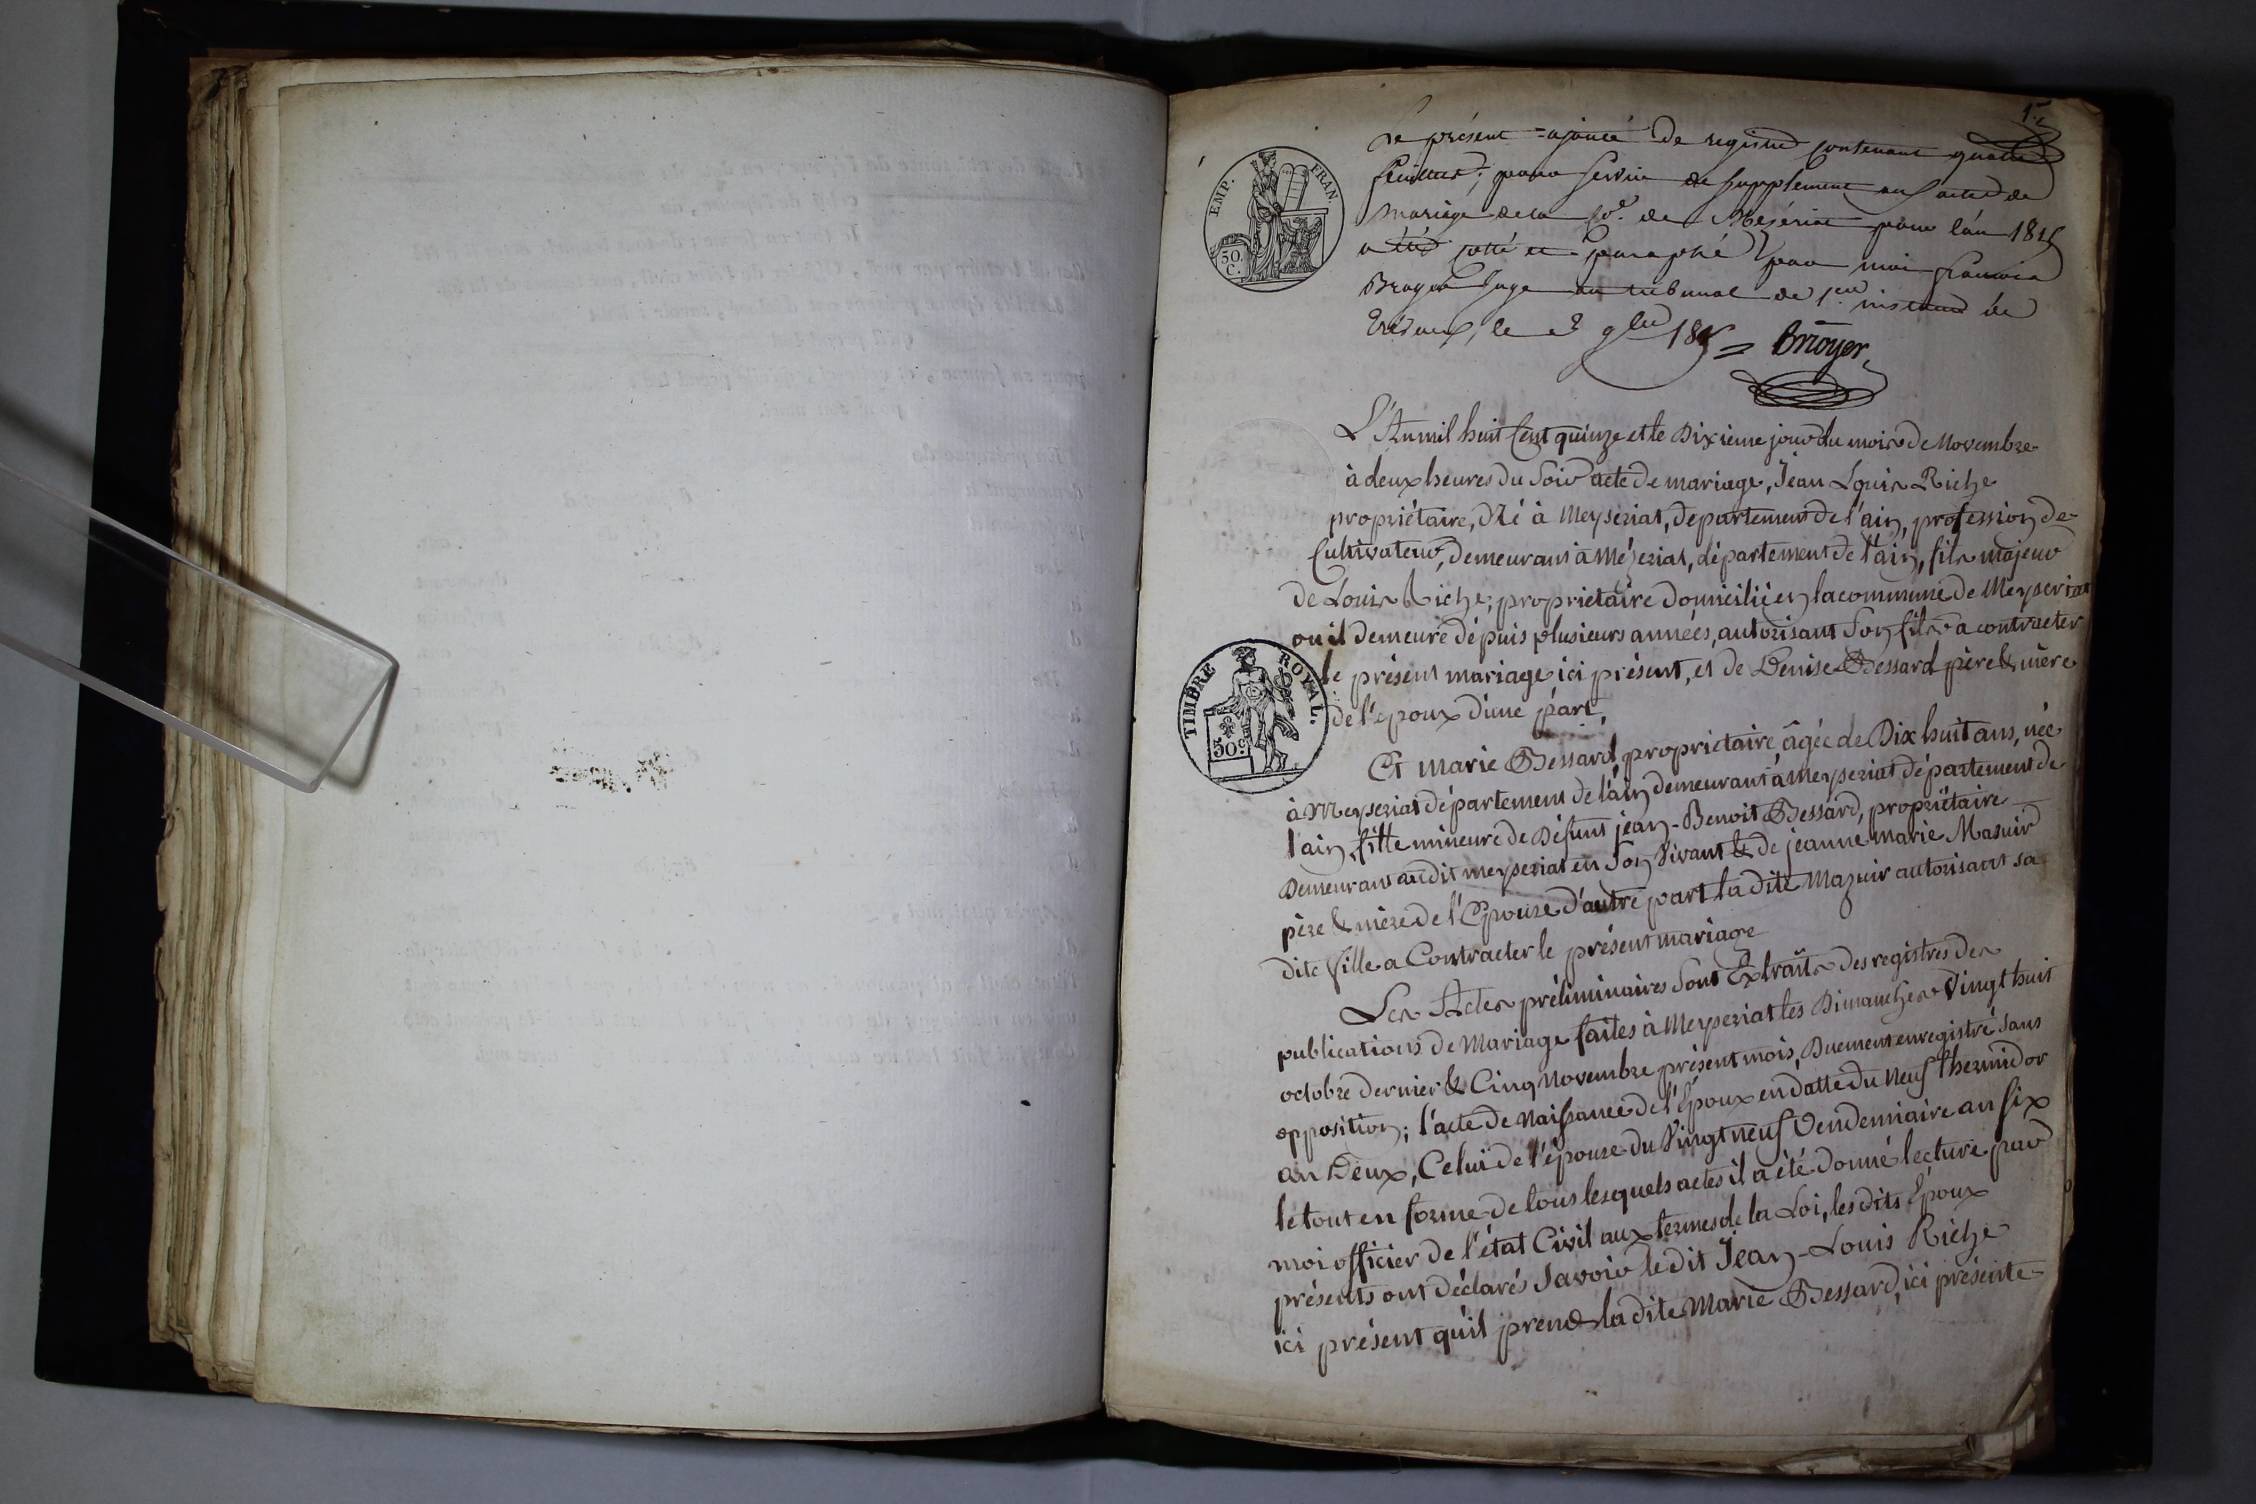 1.er
Le présent ajouté de registre contenant quatre
feuillets, pour servir de supplement aux actes de
mariage de la Co.e de Mezériat pour l'an 1815
a été cotté et paraphé par moi francois
Broyer Juge au tribunal de 1.ere instance de
Trévoux, le 3 9bre 1815 = Broyer
EMP. FRAN.
50. C.
L'An mil huit Cent quinze et le Dixieme jour du mois de Novembre
à deux heures du Soir acte de mariage, Jean Louis Riche
propriétaire, Né à Meyseriat, departement de l'ain, profession de
Cultivateur, demeurant à Mézeriat, département de l'ain, fils majeur
de Louis Riche, propriétaire domicilié en la commune de Meyseriat
ou il demeure dépuis plusieurs années, autorisant Son fils a contracter
le présent mariage ici présent, et de Denise Bessard père & mère
de l'epoux d'une part,
TIMBRE ROYAL.
50.c
Et marie Bessard propriétaire âgée de Dix huit ans, née
à Meyseriat département de l'ain demeurant à meyseriat département de
l'ain, fille mineure de Défunt jean-Benoit Bessard, propriétaire
Demeurant au dit meyseriat en Son Vivant & de jeanne marie Masuir
père & mère de l'Epouse d'autre part la dite Mazuir autorisant sa
dite fille a Contracter le présent mariage
Les Actes préliminaires Sont Extraits des registres des
publications de Mariage faites à Meyseriat les Dimanches Vingt huit
octobre dernier & Cinq Novembre présent mois, Duement enregistré Sans
opposition; l'acte de Naissance de l'Époux en datte du Neuf thermidor
an Deux, Celui de l'épouse du Vingt neuf Vendemiaire an Six
le tout en forme de tous lesquels actes il a été donné lecture par
moi officier de l'état Civil aux termes de la Loi, les dits Époux
présents ont déclarés Savoir le dit Jean-Louis Riche
ici présent qu'il prend la dite Marie Bessard, ici présente